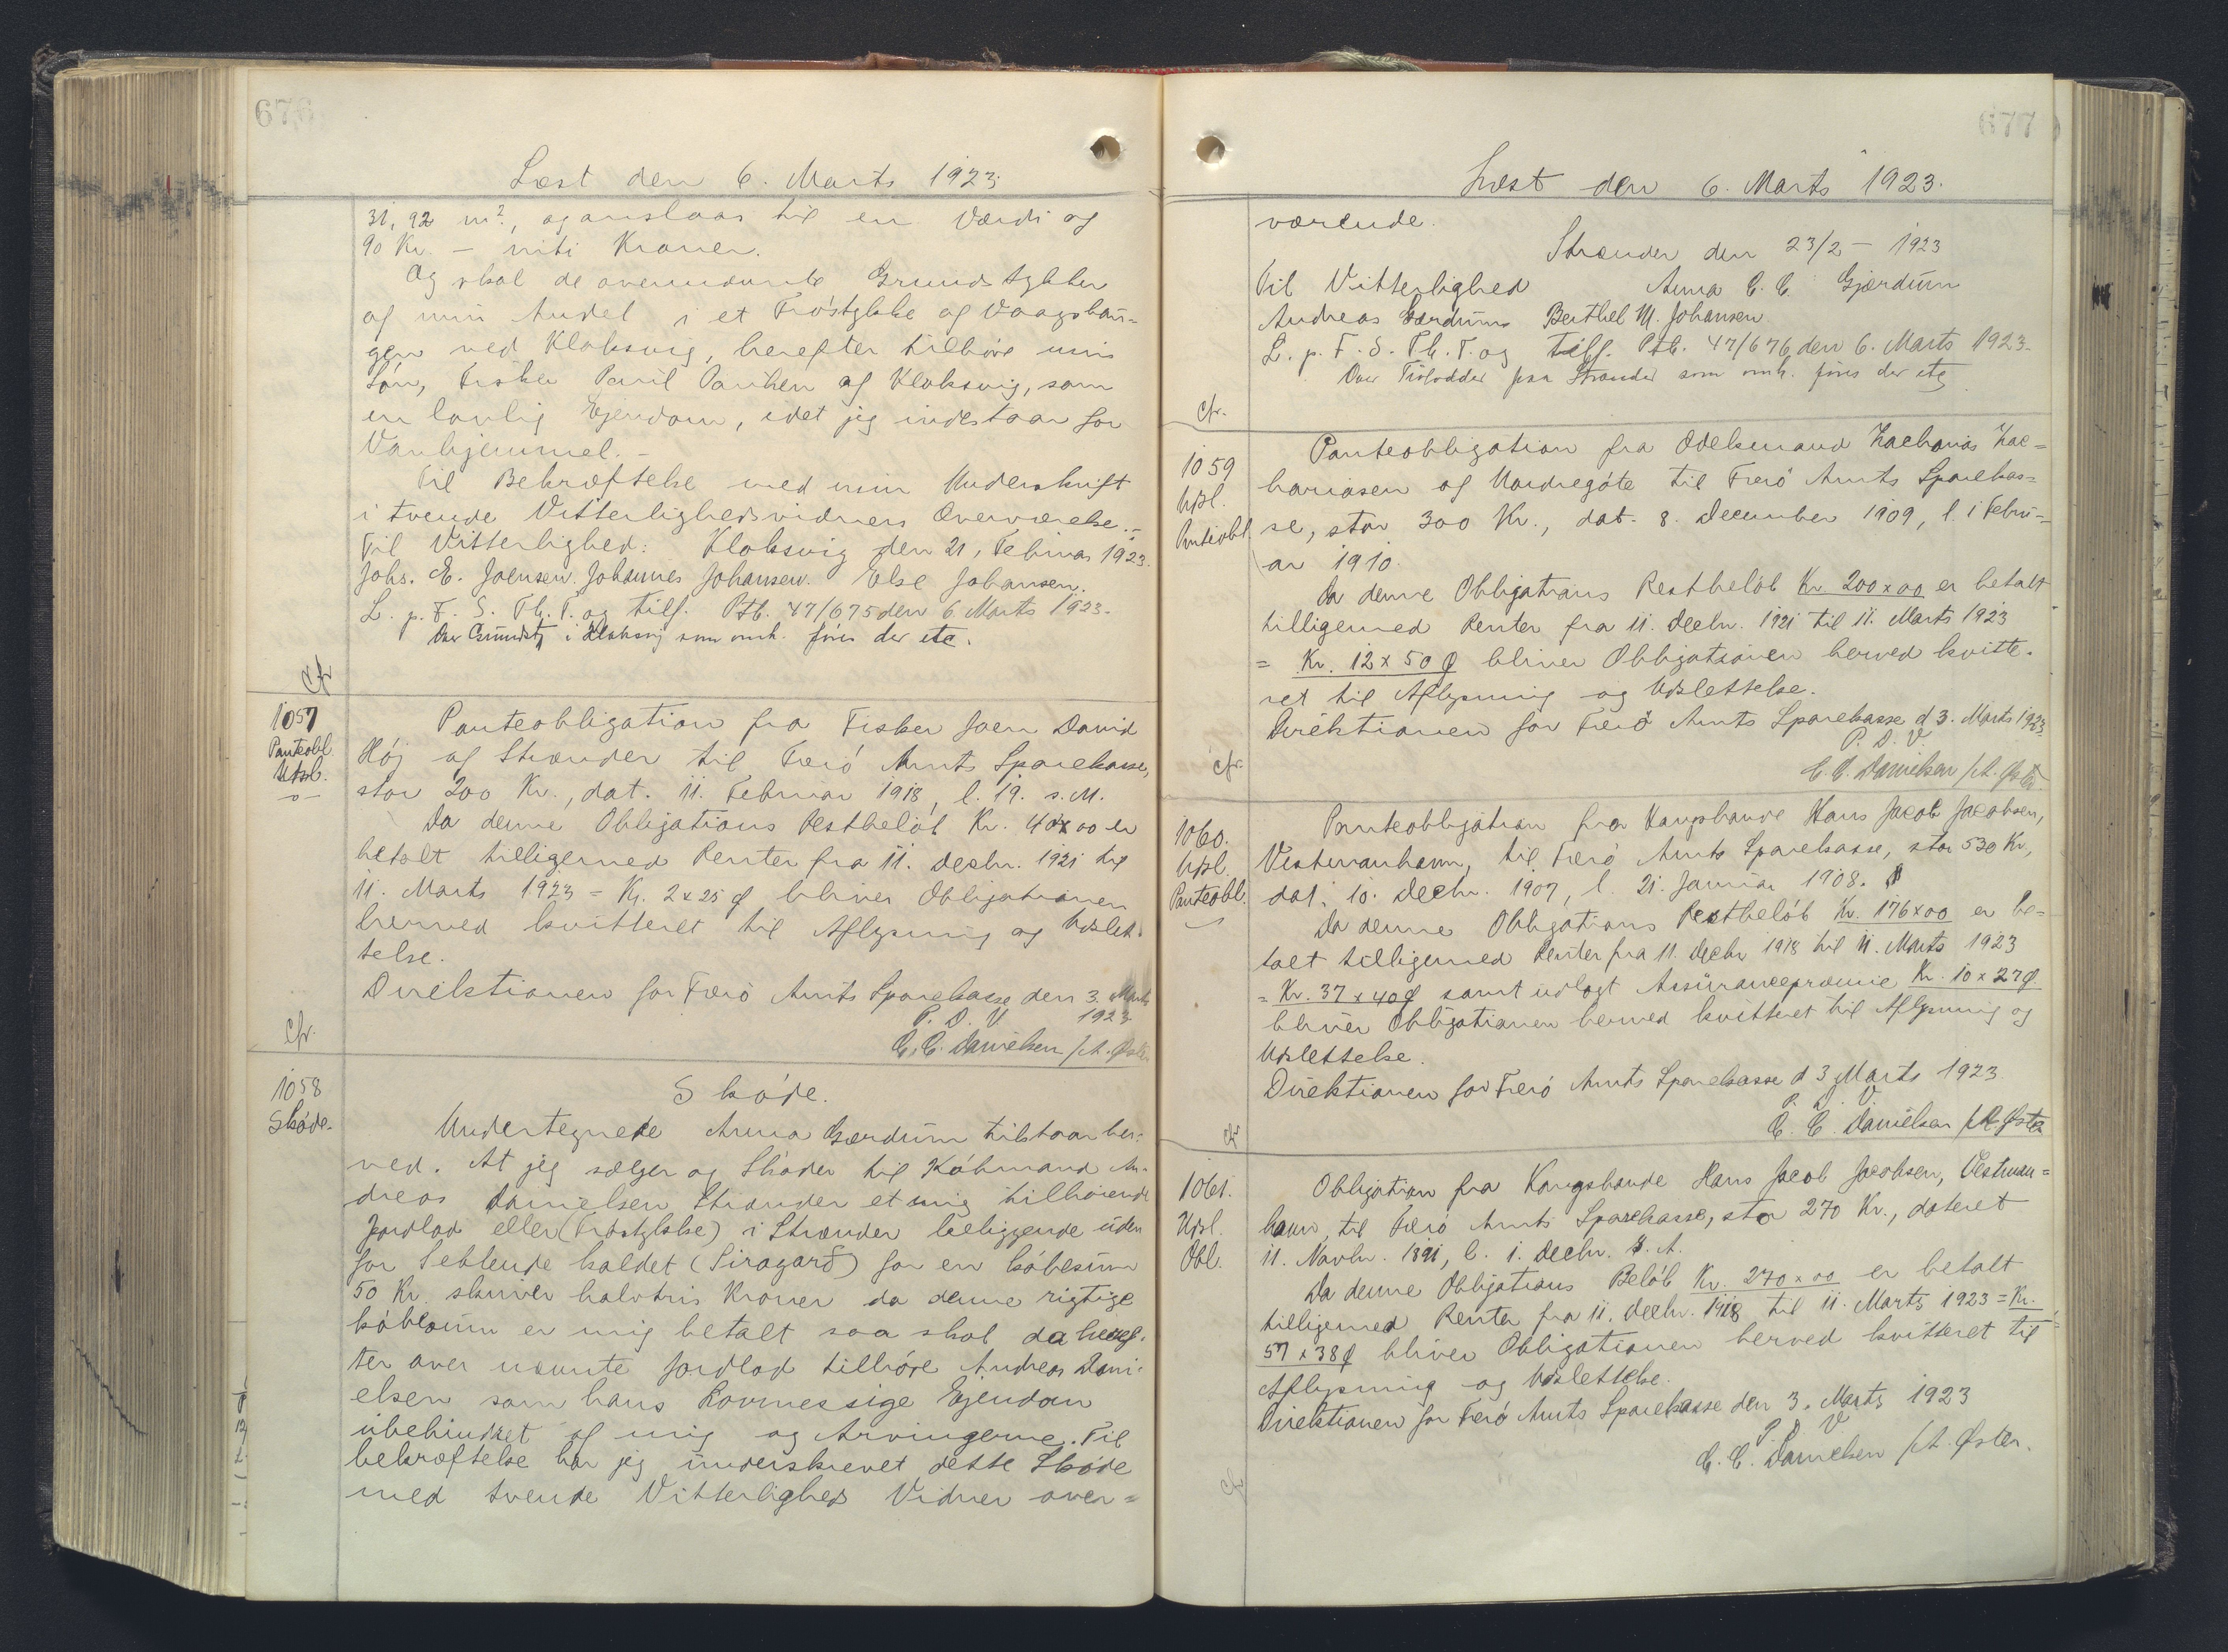 676
Læst den 6. Marts 1923
31,92 m², og anslaas til en Værdi af
90 Kr. – niti Kroner.
Og skal de ovennævnte Grundstykker
og min Andel i et Tröstykke af Vaagshau-
gen ved Klaksvig, herefter tilhöre min
Sön, Fisker Poul Poulsen af Klaksvig, som
en lovlig Ejendom, idet jeg indestaar for
Vanhjemmel. –
Til Bekræftelse med min Underskrift
i tvende Vitterlighedsvidners Overværelse. –
Til Vitterlighed: Klaksvig den 21, Februar 1923.
Johs. E. Joensen. Johannes Johansen. Else Johansen.
L. p. F. S. Th. T. og tilf. Ptb. 47/675 den 6 Marts 1923.
Over Grundst i Klaksvig som omh. föris der etc.
Cfr
1057
Panteobl.
Udsl.
Panteobligation fra Fisker Joen David
Höj af Strænder til Færö Amts Sparekasse,
stor 200 Kr., dat. 11. Februar 1918, l. 19. s. M.
Da denne Obligations Restbelöb Kr. 40x00 er
betalt tilligemed Renter fra 11. Decbr. 1921 til
11. Marts 1923 = Kr. 2x25 Ø bliver Obligationen
herved kvitteret til Aflysning og Udslet-
telse.
Direktionen for Færö Amts Sparekasse den 3. Marts
P. D. V. 1923
C. C. Danielsen /A. Øster
Cfr.
1058
Sköde.
Sköde.
Undertegnede Anna Gærdum tilstaar her-
ved. At jeg sælger og Sköder til Köbmand An-
dreas Danielsen Strænder et mig tilhörende
Jordlod eller (Tröstykke) i Strænder beliggende uden
for Seblende kaldet (Siragarð) for en köbesum
50 Kr. skriver halvtris Kroner da denne rigtige
köbesum er mig betalt saa skal da heref-
ter over nævnte Jordlod tilhöre Andreas Dani-
elsen som hans Lovmessige Ejendom
ubehindret af mig og Arvingerne. Til
bekræftelse har jeg underskrevet dette Sköde
med tvende Vitterligheds Vidner over=
677
Læst den 6. Marts 1923.
værende.
Strænder den 23/2 – 1923
Til Vitterlighed Anna C. C. Gjærdum
Andreas Gærdum Berthel M. Johansen
L. p. F. S. Th. T. og tilf. Ptb. 47/676 den 6. Marts 1923.
Over Trölodder paa Strander som omh. föris der etc
Cfr.
1059
Udsl.
Panteobl.
Panteobligation fra Odelsmand Zacharias Zac=
hariasen af Nordregöte til Færö Amts Sparekas=
se, stor 300 Kr., dat. 8. December 1909, l. i Febru=
ar 1910.
Da denne Obligations Restbelöb Kr. 200x00 er betalt
tilligemed Renter fra 11. Decbr. 1921 til 11. Marts 1923
= Kr. 12x50 Ø bliver Obligationen herved kvitte-
ret til Aflysning og Udslettelse.
Direktionen for Færö Amts Sparekasse d 3. Marts 1923
P. D. V.
C. C. Danielsen /A. Øster
cfr.
1060.
Udsl.
Panteobl.
Panteobligation fra Kongsbonde Hans Jacob Jacobsen,
Vestmanhavn, til Færö Amts Sparekasse, stor 530 Kr.,
dat. 10. Decbr. 1907, l. 21. Januar 1908.
Da denne Obligations Restbelöb Kr. 176x00 er be-
talt tilligemed Renter fra 11. Decbr 1918 til 11. Marts 1923
= Kr. 37x40 Ø samt udlagt Assurancepræmie Kr. 10x27 Ø
bliver Obligationen herved kvitteret til Aflysning og
Udslettelse.
Direktionen for Færö Amts Sparekasse d 3 Marts 1923
P. D. V.
C. C. Danielsen /A. Øster
Cfr
1061.
Udsl.
Obl.
Obligation fra Kongsbonde Hans Jacob Jacobsen, Vestman=
havn, til Færö Amts Sparekasse, stor 270 Kr., dateret
11. Novbr. 1891, l. 1. Decbr. s. A.
Da denne Obligations Belöb Kr. 270x00 er betalt
tilligemed Renter fra 11. Decbr. 1918 til 11. Marts 1923 = Kr.
57x38 Ø bliver Obligationen herved kvitteret til
Aflysning og Udslettelse.
Direktionen for Færö Amts Sparekasse den 3. Marts 1923
P. D. V
C. C. Danielsen /A. Øster.
Cfr